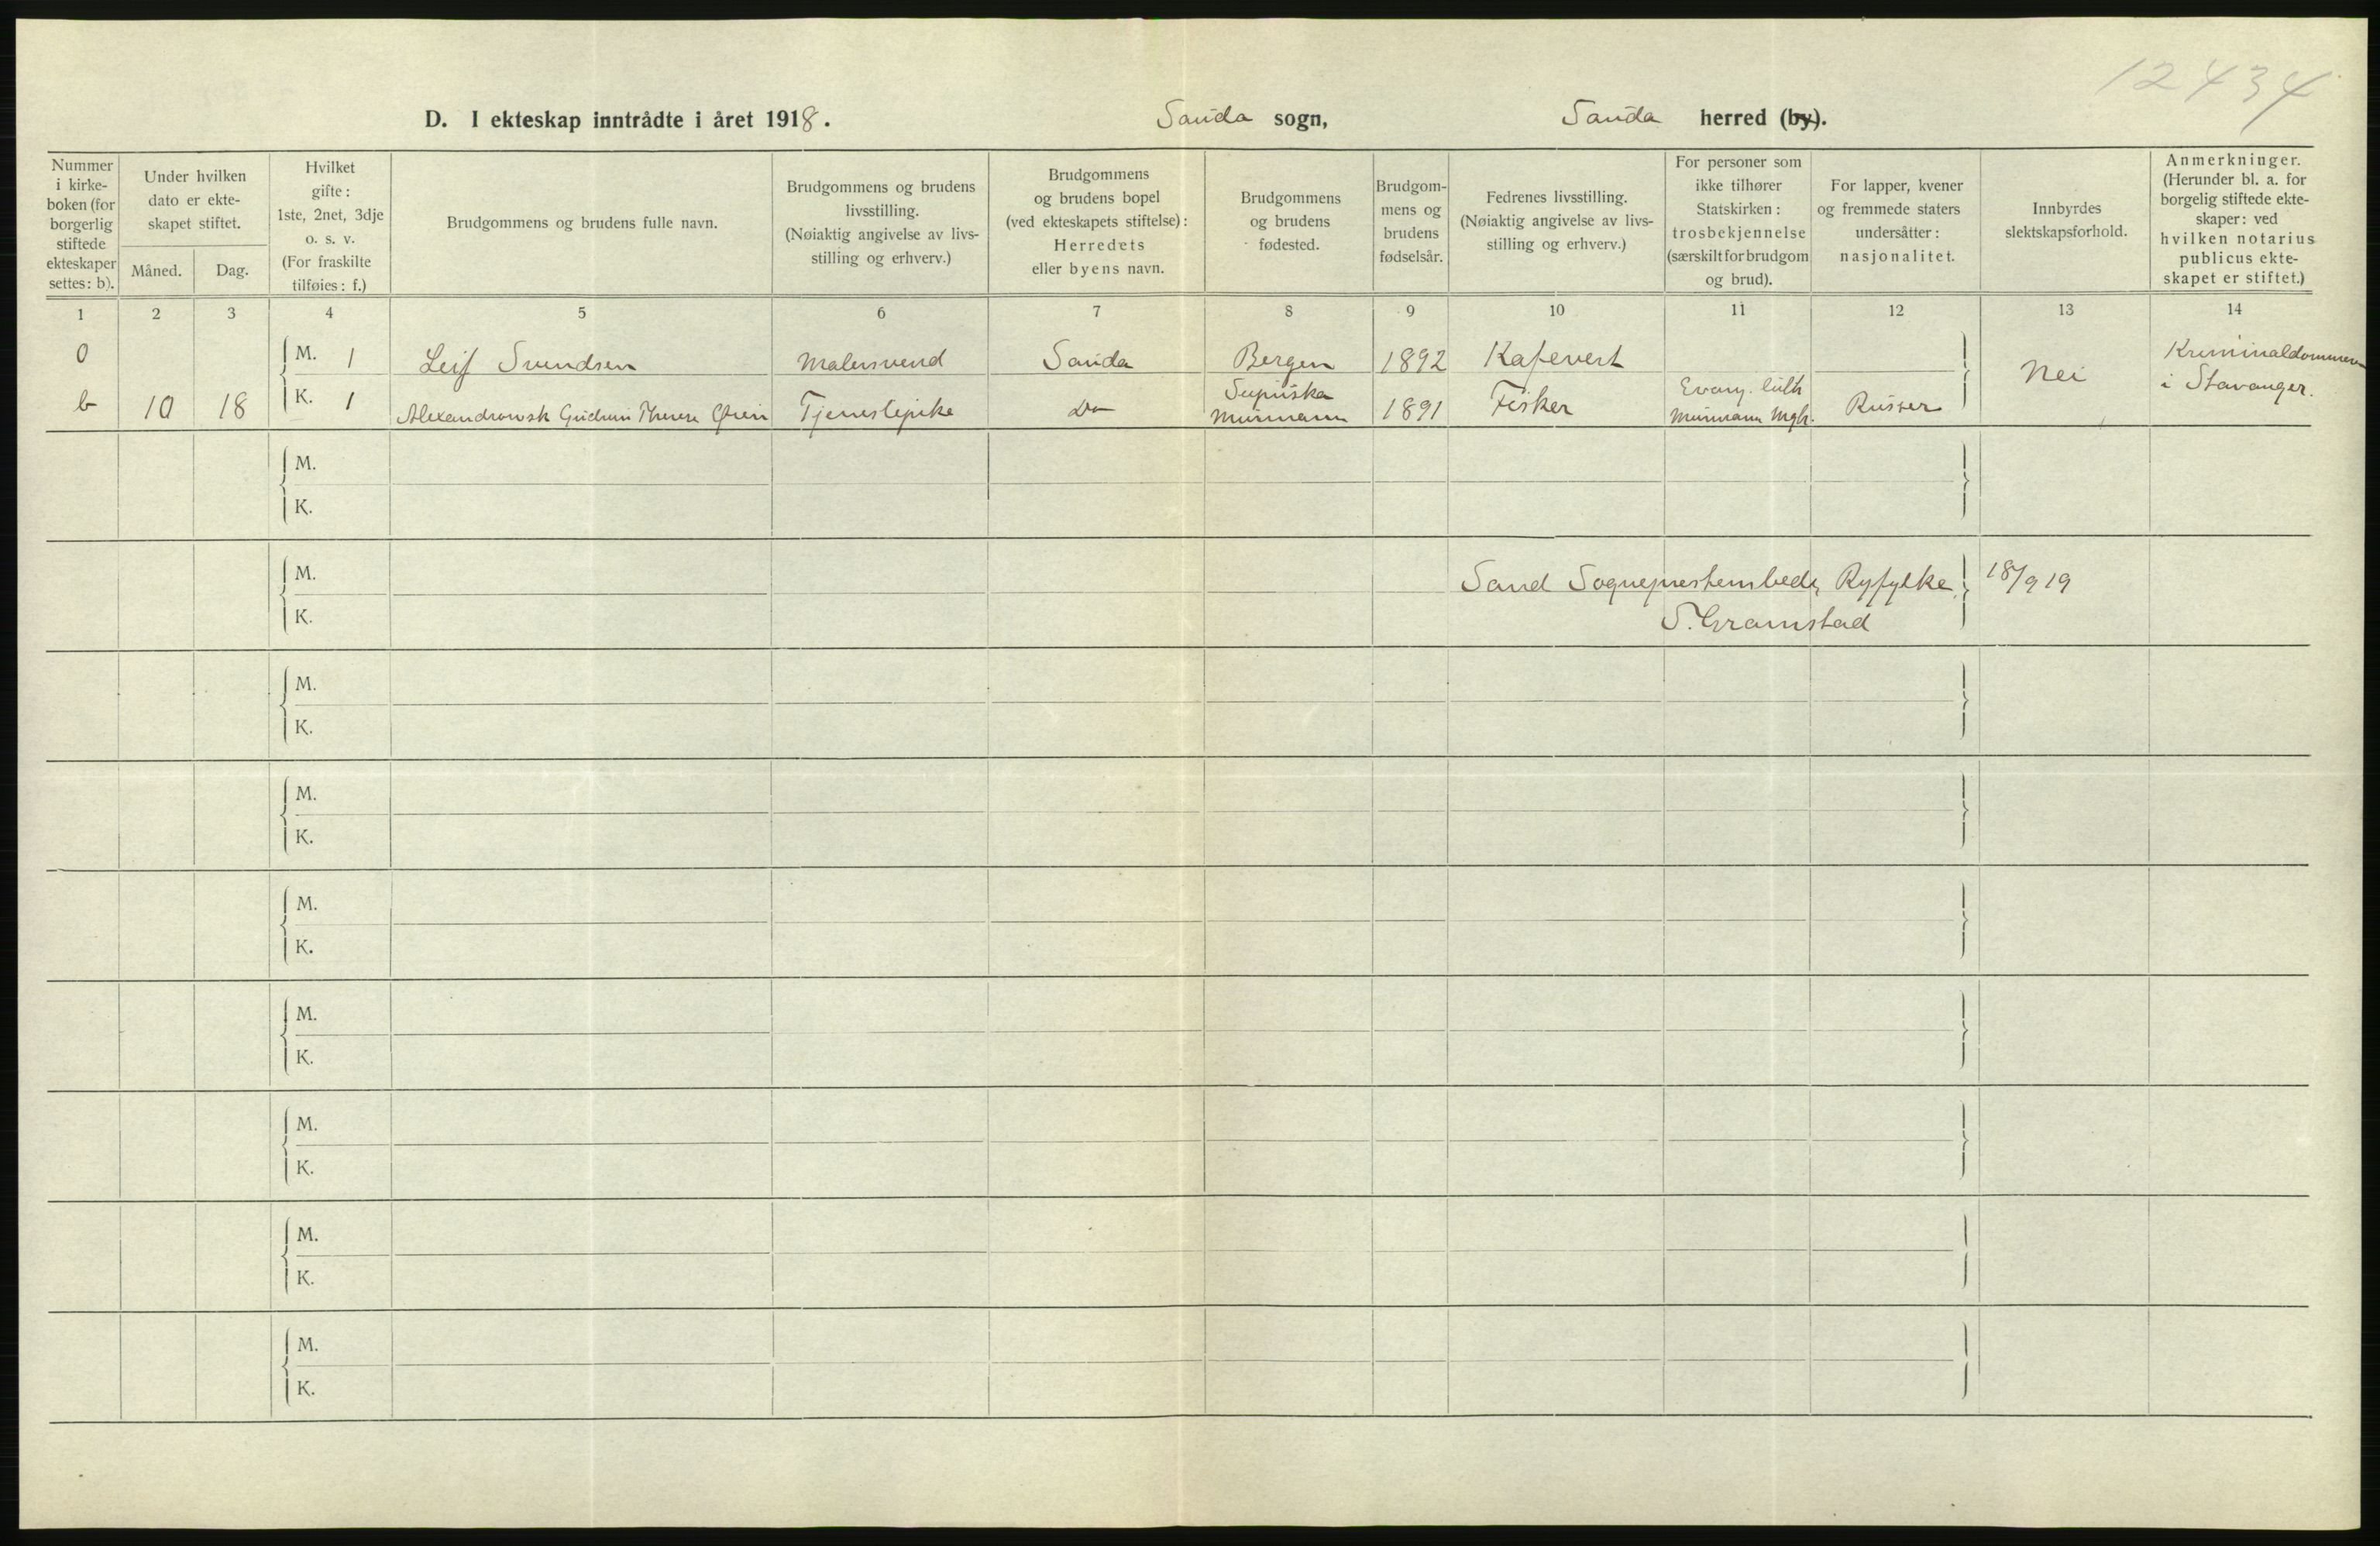 12434
D. I ekteskap inntrådte i året 1918. Sauda sogn, Sauda herred (by).
Nummer i kirkeboken (for borgerlig stiftede ekteskaper settes: b).
Under hvilken dato er ekteskapet stiftet.
Måned.
Dag.
Hvilket gifte: 1ste, 2net, 3dje o. s. v. (For fraskilte tilføies: f.)
Brudgommens og brudens fulle navn.
Brudgommens og brudens livsstilling. (Nøiaktig angivelse av livsstilling og erhverv.)
Brudgommens og brudens bopel (ved ekteskapets stiftelse): Herredets eller byens navn.
Brudgommens og brudens fødested.
Brudgommens og brudens fødselsår.
Fedrenes livsstilling. (Nøiaktig angivelse av livsstilling og erhverv.)
For personer som ikke tilhører Statskirken: trosbekjennelse (særskilt for brudgom og brud).
For lapper, kvener og fremmede staters undersåtter: nasjonalitet.
Innbyrdes slektskapsforhold.
Anmerkninger. (Herunder bl. a. for borgelig stiftede ekteskaper: ved hvilken notarius publicus ekteskapet er stiftet.)
1 2 3 4 5 6 7 8 9 10 11 12 13 14
0 M. 1 Leif Svendsen Malersvend Sauda Bergen 1892 Kafevert
b 10 18 K. 1 Alexandrowsk Gudrun Therese Do Murmann 1891 Fisker Evang. luth Murmann Russer
Tjenestepike
Nei
Kriminaldommeren
i Stavanger.
M.
K.
M.
K.
Sand Sogneprestembede, Ryfylke, 18/9 19
S. Gramstad
M.
K.
M.
K.
M.
K.
M.
K.
M.
K.
M.
K.
M.
K.